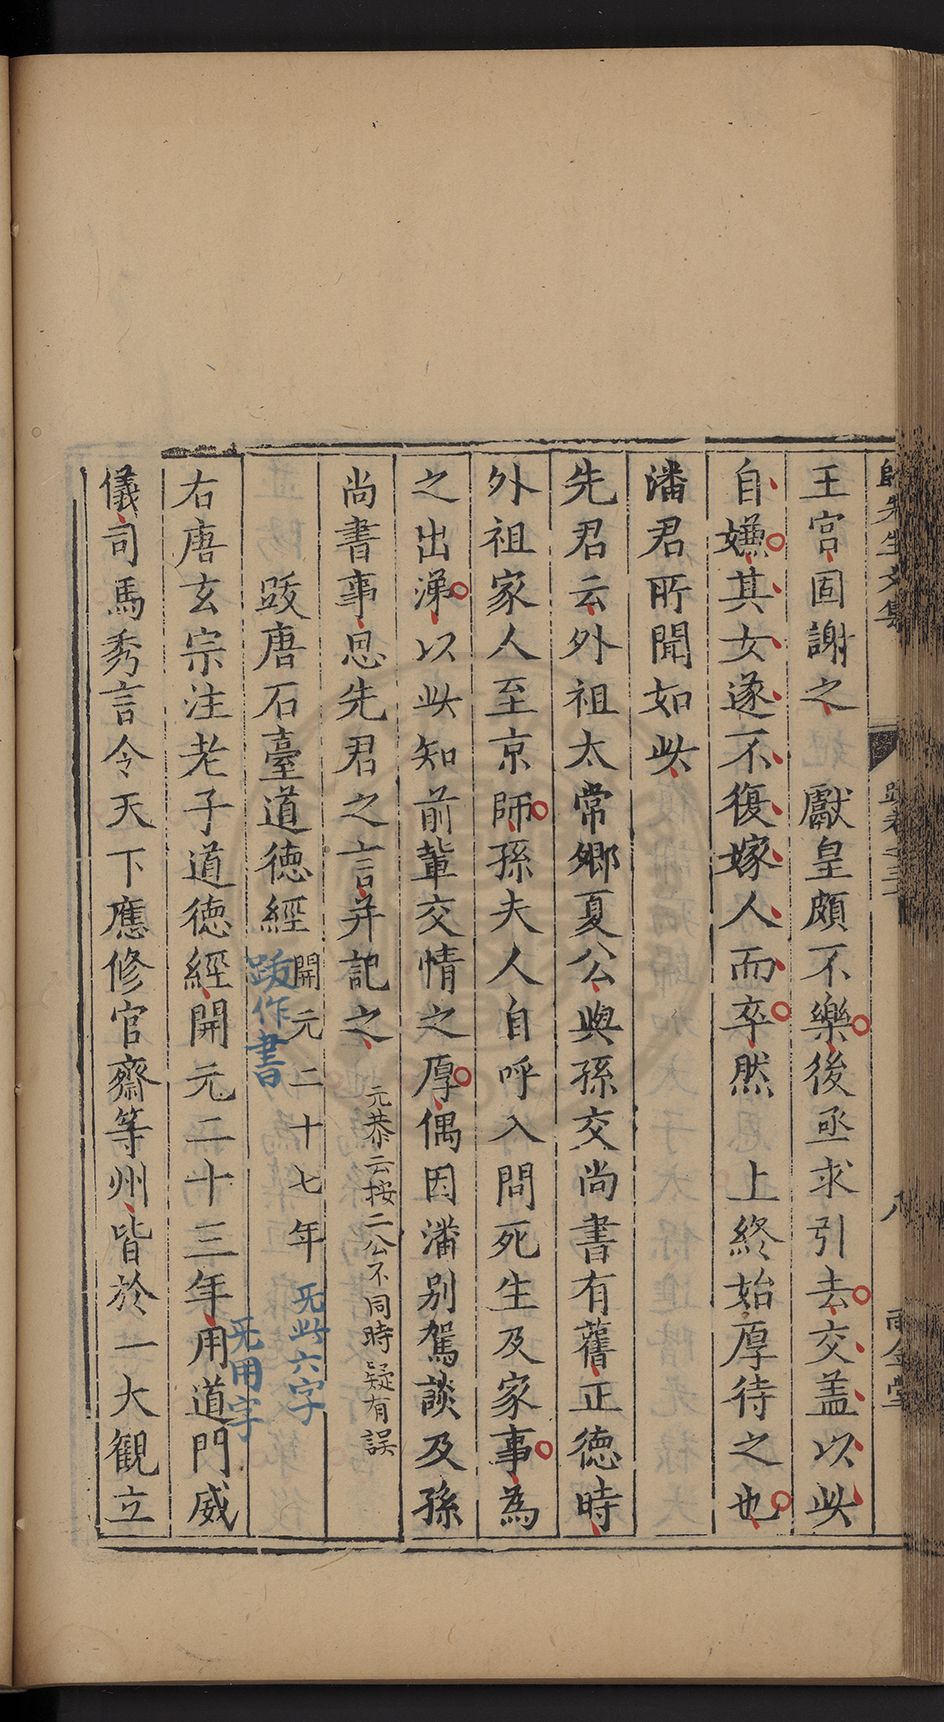 先生文集
八
雨金堂
王宫固謝之　獻皇頗不樂後亟求引去交盖以此
自嫌其女遂不復嫁人而卒然　上終始厚待之也
潘君所聞如此
先君云外祖太常鄉夏公與孫交尚書有舊正徳時
外祖家人至京師孫夫人自呼入問死生及家事為
之出涕以此知前輩交情之厚偶因潘别駕談及孫
尚書事思先君之言并記之
元恭云按二公不同時疑有誤
跋唐石臺道徳經
開元二十七年
跋作書
旡此六字
右唐玄宗注老子道徳經開元二十三年用道門威
旡用字
儀司馬秀言令天下應修官齋等州皆於一大觀立